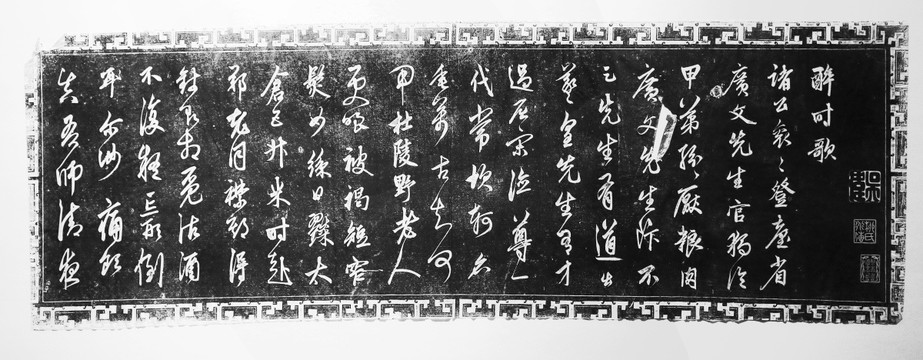 醉时歌
諸公袞々登臺省
廣文先生官獨冷
甲第紛々厭粱肉
廣文先生飯不
足先生有道出
羲皇先生有才
過屈宋德尊一
代常坎軻名
垂萬古知何
用杜陵野老人
更嗤被褐短窄
鬢如絲日糴太
倉五升米时赴
鄭老同襟期得
錢即相覓沽酒
不復疑忘形到
爾汝痛飲
真吾師清夜